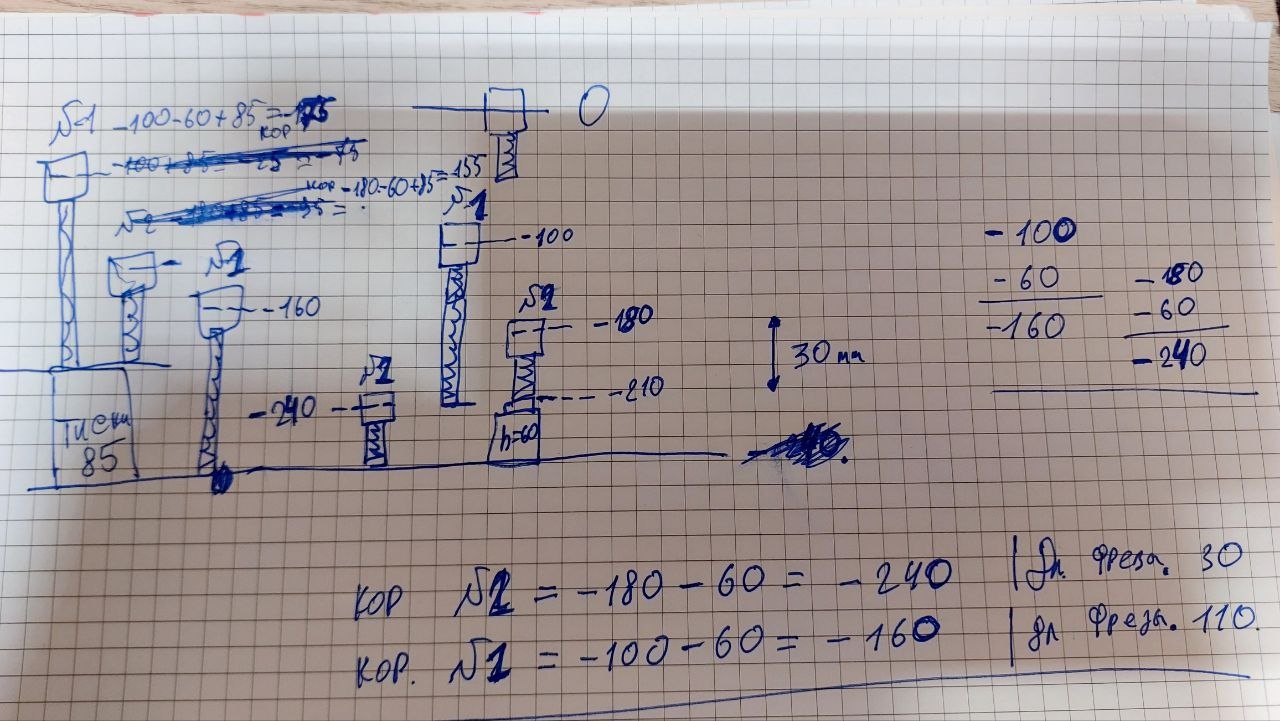 №1 -100-60+85=-75
кор
-100+85=-25=-75
кор -180-60+85=155
№2
№1
0
№1
-100
-160
№2
-180
30 мм
-210
№2
-240
h=60
тиски
85
-100
-60
-160
-180
-60
-240
кор №2 = -180 - 60 = - 240 | Дл. Фреза. 30
кор. №1 = -100 - 60 = - 160 | дл Фрезы. 110.